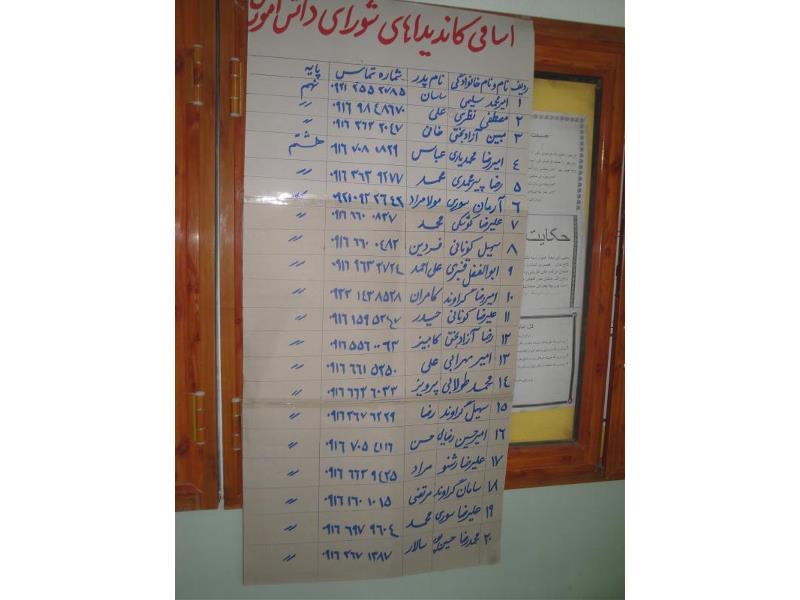 اسامی کاندیداهای شورای دانش آموزی
ردیف نام و نام خانوادگی نام پدر شماره تماس پایه
۱ امیرمحمد سلیمی ساسان ۰۹۲۱ ۲۵۵ ۲۷۸۵ نهم
۲ مصطفی نظری علی ۰۹۱۶ ۹۸ ۴۸۶۷۰ 〃
۳ مبین آزادبخت خانی ۰۹۱۶ ۳۶۳ ۲۰۴۷ 〃
۴ امیررضا محمدیاری عباس ۰۹۱۶ ۷۰۸ ۱۸۲۹ هشتم
۵ رضا پیرمحمدی محمد ۰۹۱۶ ۳۶۳ ۹۲۷۷ 〃
۶ آرمان سوری مولامراد 〃
۷ علیرضا کوشکی محمد ۰۹۱۶ ۶۶۰ ۰۸۳۷ 〃
۸ سهیل کونانی فردین ۰۹۱۶ ۶۶۰ ۰۴۸۲ 〃
۹ ابوالفضل قنبری علی احمد ۰۹۱۶ ۹۶۳ ۲۷۲۴ 〃
۱۰ امیررضا گراوند کامران ۰۹۳۳ ۱۴۳ ۸۵۳۸ 〃
۱۱ علیرضا کونانی حیدر ۰۹۱۶ ۱۵۹ ۵۳۴۷ 〃
۱۲ رضا آزادبخت کامبیز ۰۹۱۶ ۵۵۶ ۰۰۶۳ 〃
۱۳ امیر مهرابی علی ۰۹۱۶ ۶۶۱ ۵۲۵۰ 〃
۱۴ محمد طولابی پرویز ۰۹۱۶ ۶۶۳ ۶۰۳۳ 〃
۱۵ سهیل گراوند رضا ۰۹۱۶ ۳۶۷ ۶۲۲۹ 〃
۱۶ امیرحسین رضایی حسن ۰۹۱۶ ۷۰۵ ۴۱۱۶ 〃
۱۷ علیرضا رشنو مراد ۰۹۱۶ ۶۶۳ ۹۴۲۵ 〃
۱۸ سامان گراوند مرتضی ۰۹۱۶ ۱۶۰ ۱۰۱۵ 〃
۱۹ علیرضا سوری محمد ۰۹۱۶ ۶۹۷ ۹۶۰۴ 〃
۲۰ محمدرضا سالار ۰۹۱۶ ۲۶۷ ۱۳۸۷ 〃
حکایت